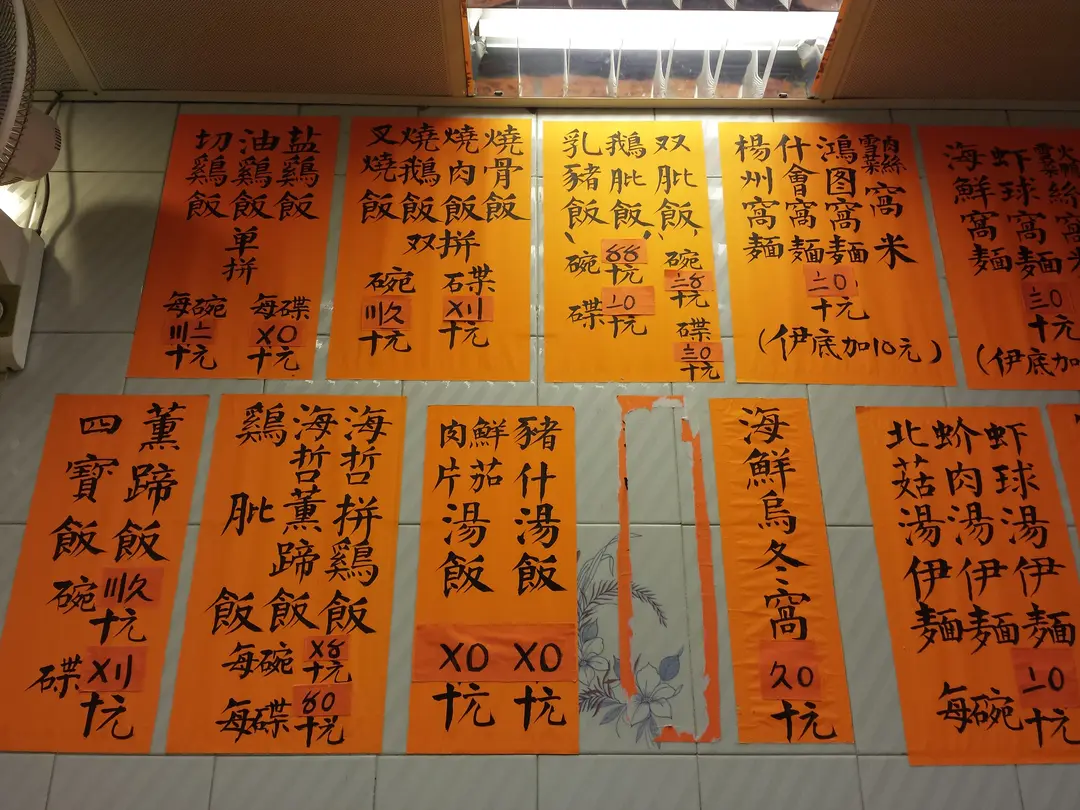 盐鷄飯
油鷄飯
切鷄飯
单拼
每碗
〣二
十元
每碟
〤〇
十元
燒骨飯
燒肉飯
燒鵝飯
叉燒飯
双拼
碗
〣〩
十元
碟
〤〢
十元
双肶飯
鵝肶飯
乳豬飯
碗
〥〥
十元
碟
〦〇
十元
碗
〧〥
十元
碟
〨〇
十元
雪菜肉絲窩米
鴻图窩麵
什會窩麵
楊州窩麵
〧〇
十元
(伊底加10元)
虾球窩麵
海鮮窩麵
〨〇
十元
(伊底加
薰蹄飯
四寶飯
碗
〣〩
十元
碟
〤〢
十元
海哲拼鷄飯
海哲薰蹄飯
鷄肶飯
每碗
〤〥
十元
每碟
〥〇
十元
豬什湯飯
〤〇
十元
鮮茄肉片湯飯
〤〇
十元
海鮮烏冬窩
〩〇
十元
虾球湯伊麵
蚧肉湯伊麵
北菇湯伊麵
每碗
〦〇
十元